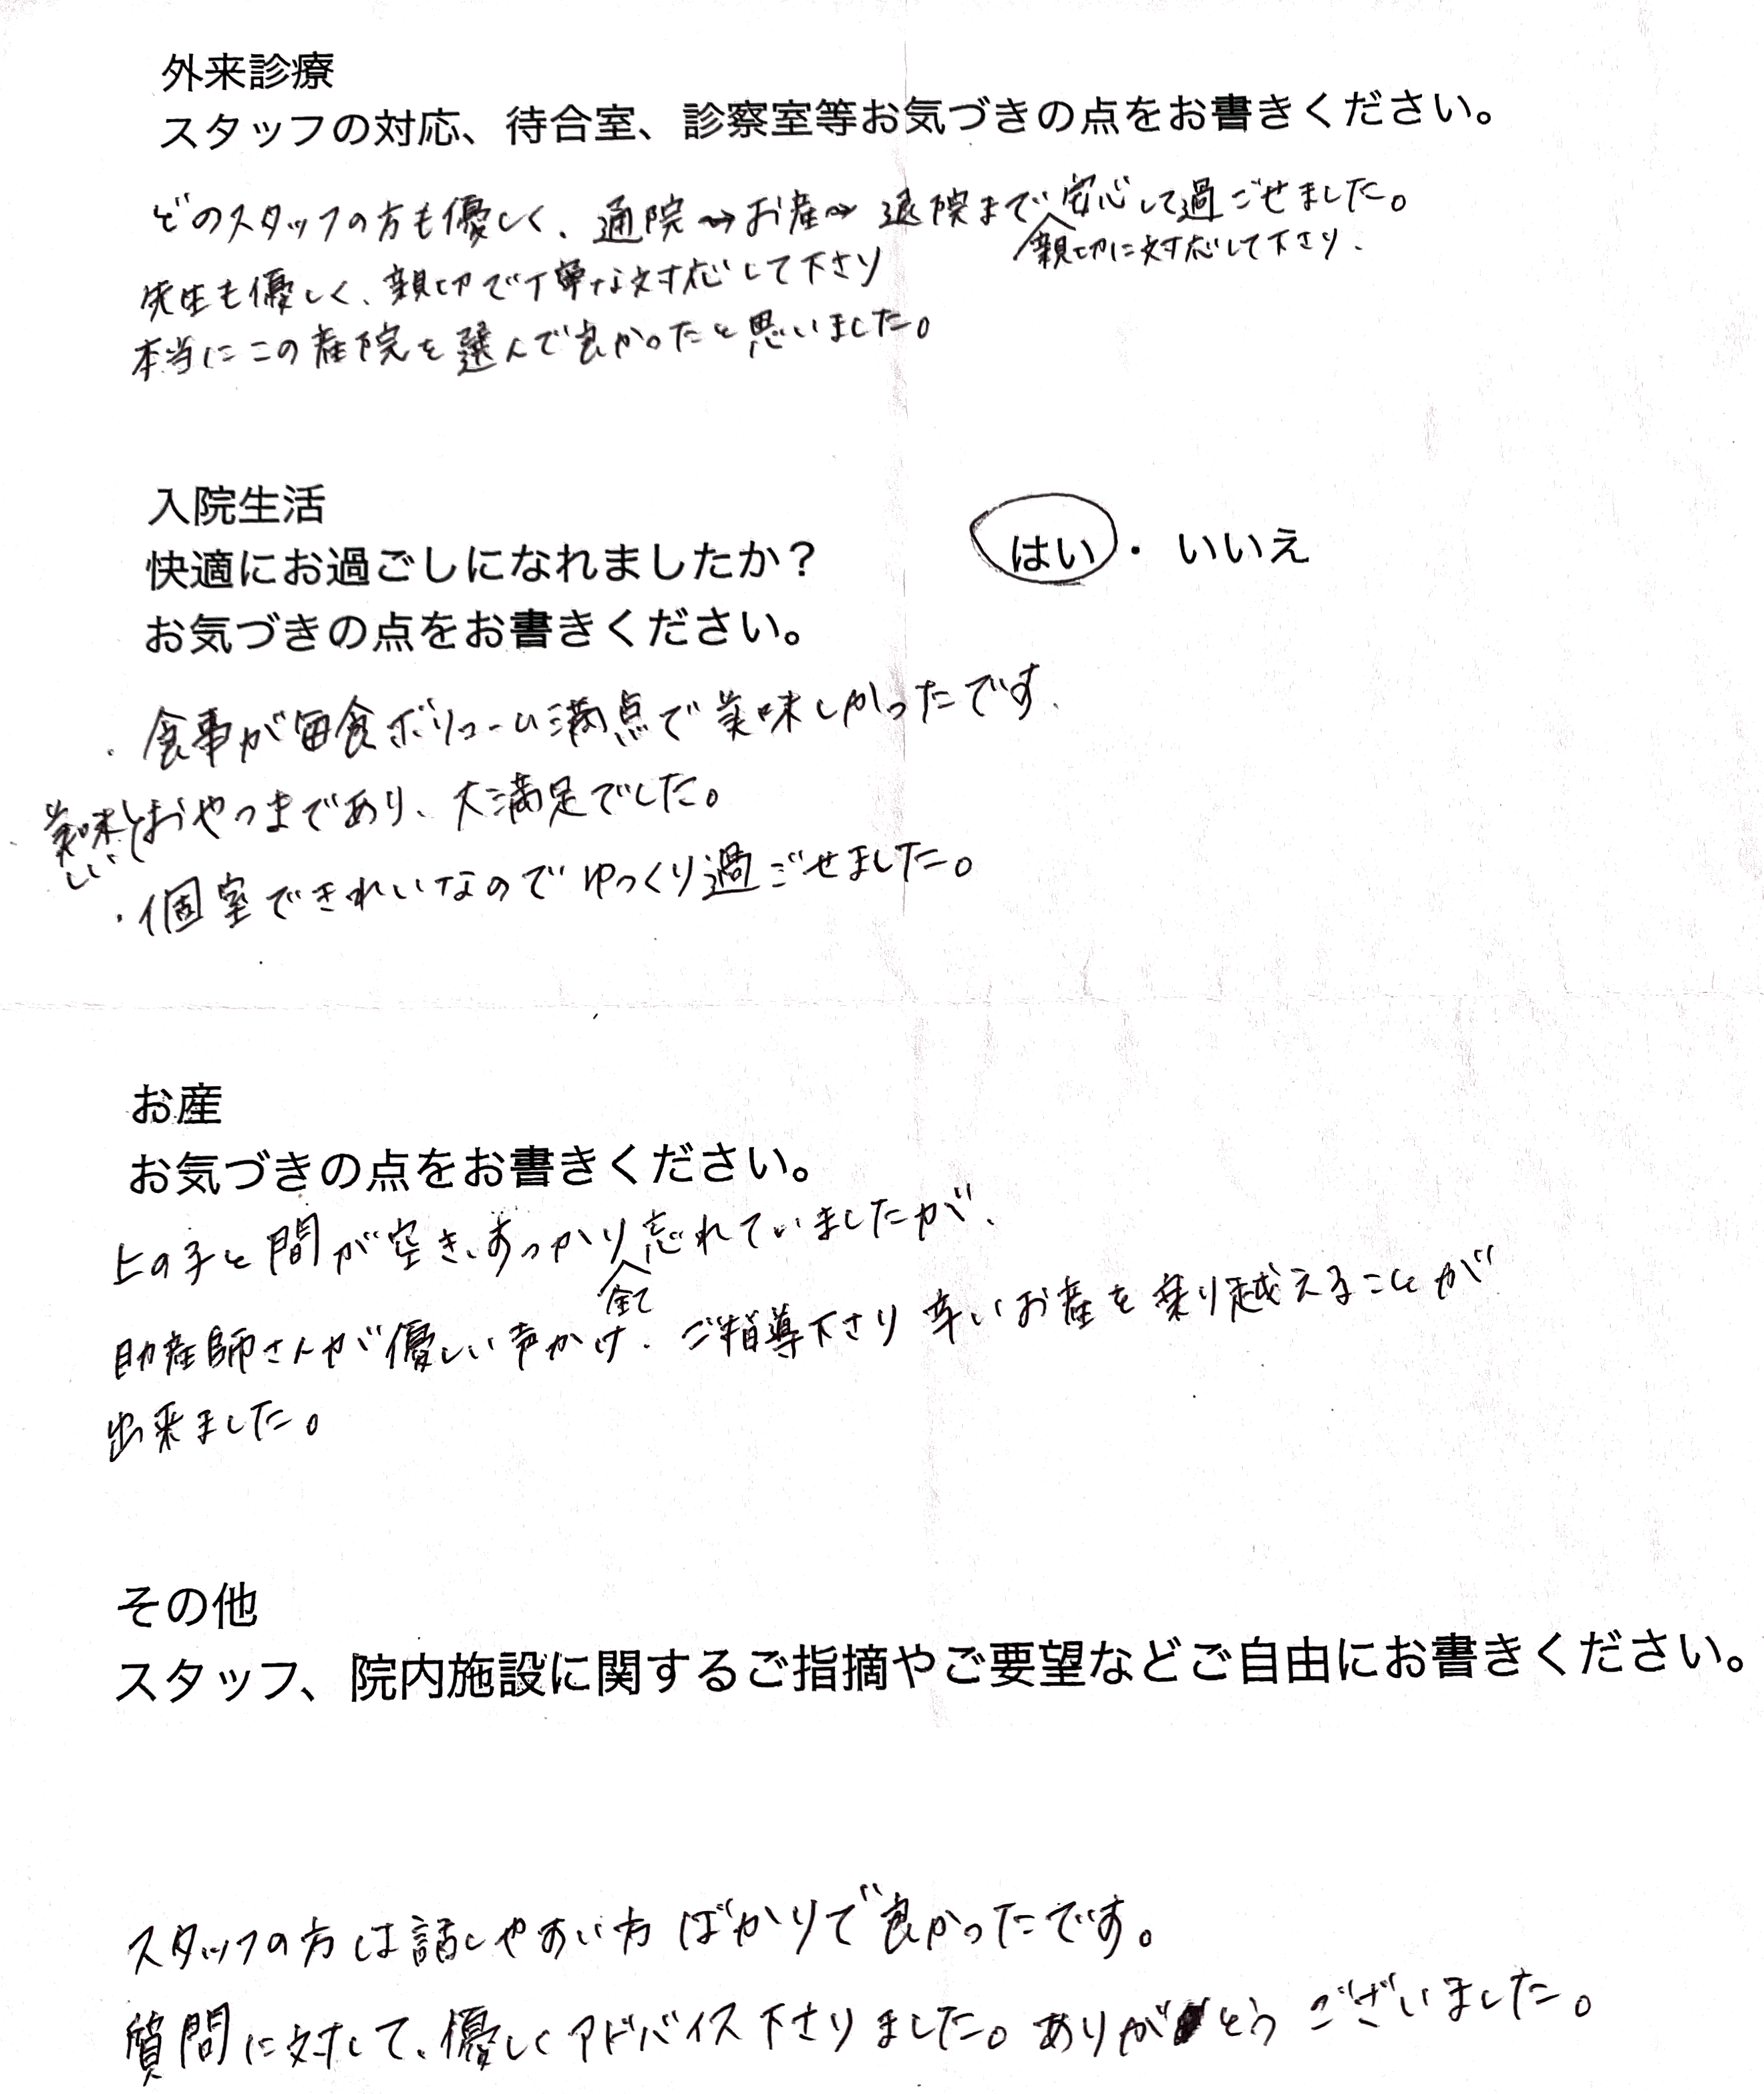 外来診療
スタッフの対応、待合室、診察室等お気づきの点をお書きください。
どのスタッフの方も優しく、通院→お産→退院まで安心して過ごせました。
親切に対応して下さり、
先生も優しく、親切で丁寧な対応して下さり
本当にこの産院を選んで良かったと思いました。
入院生活
快適にお過ごしになれましたか？ はい・いいえ
お気づきの点をお書きください。
・食事が毎食ボリューム満点で美味しかったです、
美味しいおやつまであり、大満足でした。
・個室できれいなのでゆっくり過ごせました。
お産
お気づきの点をお書きください。
上の子と間が空き、すっかり忘れていましたが、
全て
助産師さんが優しい声かけ、ご指導下さり辛いお産を乗り越えることが
出来ました。
その他
スタッフ、院内施設に関するご指摘やご要望などご自由にお書きください。
スタッフの方は話しやすい方ばかりで良かったです。
質問に対して、優しくアドバイス下さりました。ありがとうございました。